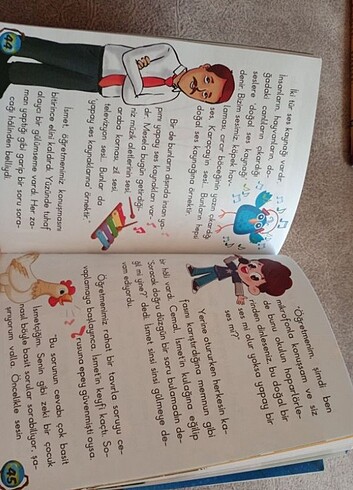 İki tür ses kaynağı vardır.
İnsanların, hayvanların, do-
ğadaki canlıların çıkardığı
seslere 'doğal ses kaynağı'
denir. Bizim sesimiz, köpek hav-
laması, Circir böceğinin yazın çıkardığı
ses, Karaçay'ın sesi.. Bunların hepsi
doğal ses kaynağına örnektir.
Bir de bunların dışında insan ya-
pımı yapay ses kaynakları var-
dır. Mesela bugün getirdiği-
niz müzik aletlerinin sesi,
araba kornası, zil sesi,
televizyon sesi.. Bunlar da
yapay ses kaynaklarına örnektir."
İsmet, öğretmenimiz konuşmasını
bitirince elini kaldırdı. Yüzünde tuhaf
alaycı bir gülümseme vardı. Her za-
man yaptığı gibi garip bir soru sora-
cağı hâlinden belliydi.
44
"Öğretmenim, şimdi ben
mikrofonla konuşsam ve siz
de bunu okulun hoparlörle-
rinden dinleseniz bu doğal bir
ses mi olur yoksa yapay bir
ses mi?"
Yerine otururken herkesin ka-
fasını karıştırdığına memnun gibi
bir hâli vardı. Cemal, İsmet'in kulağına eğilip
"Sıracak doğru düzgün bir soru bulamadın de-
ğil mi yine?" dedi. İsmet sinsi sinsi gülmeye de-
vam ediyordu.
Öğretmenimiz rahat bir tavırla soruyu ce-
vaplamaya başlayınca, İsmet'in keyfi kaçtı. So-
rusuna epey güvenmişti oysa.
"Bu sorunun cevabı çok basit
İsmetçiğim. Senin gibi zeki bir çocuk
nasıl böyle basit sorular sorabiliyor, şa-
şırıyorum valla. Öncelikle sesin
45